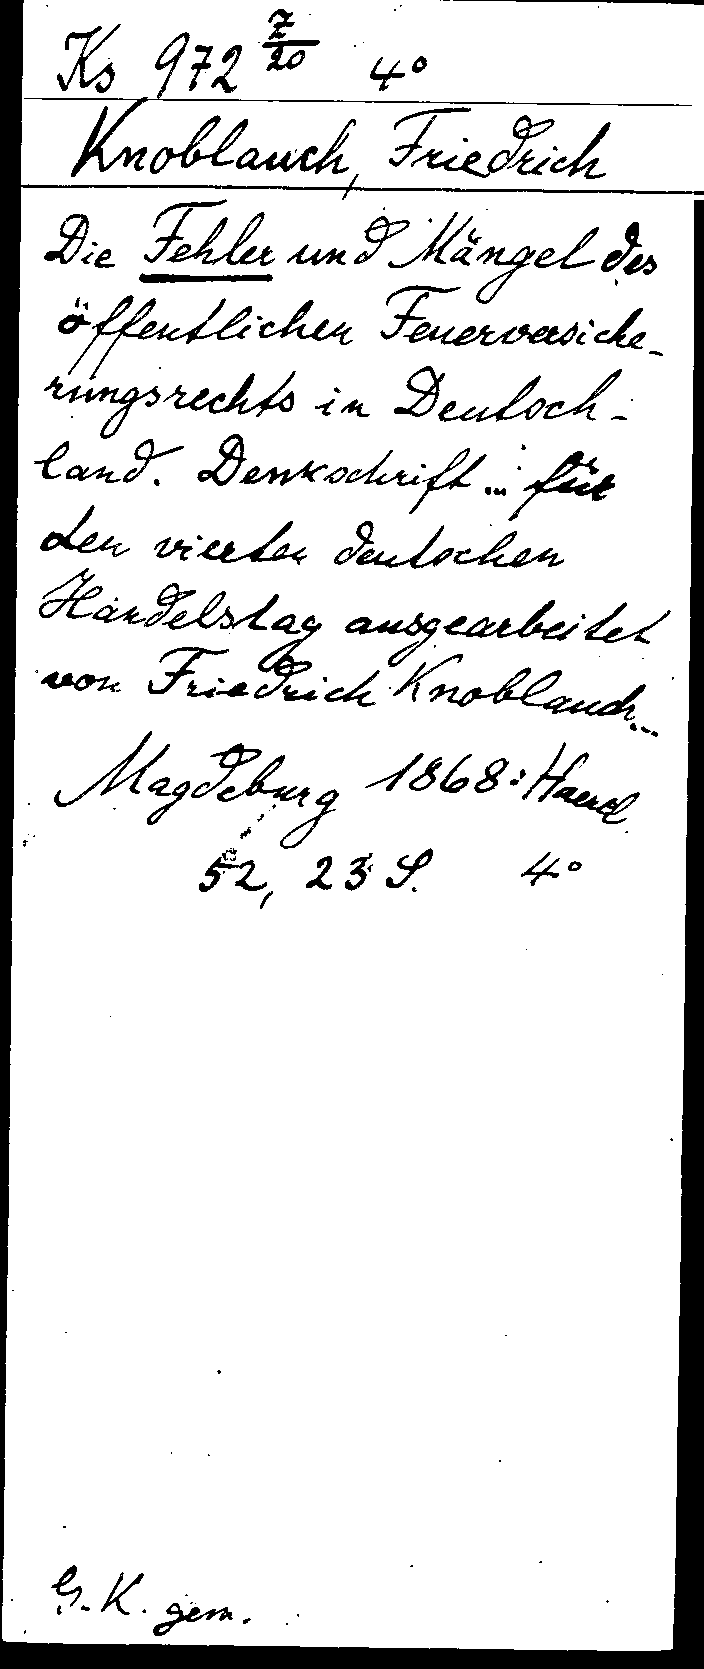 Ks 972 7/20 4°
Knoblauch, Friedrich
Die Fehler und Mängel des
öffentlichen Feuerversiche-
rungsrechts in Deutsch-
land. Denkschrift ... für
den vierten deutschen
Handelstag ausgearbeitet
von Friedrich Knoblauch...
Magdeburg 1868: Haenel
52, 23 S. 4°
G. K. gem.